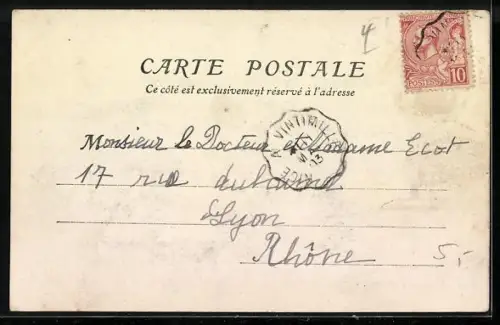 4
CARTE POSTALE
Ce côté est exclusivement réservé à l'adresse
10
VINTIMILLE A NICE
Monsieur le Docteur et Madame Ecot
17 rue
Lyon
Rhône
5,-